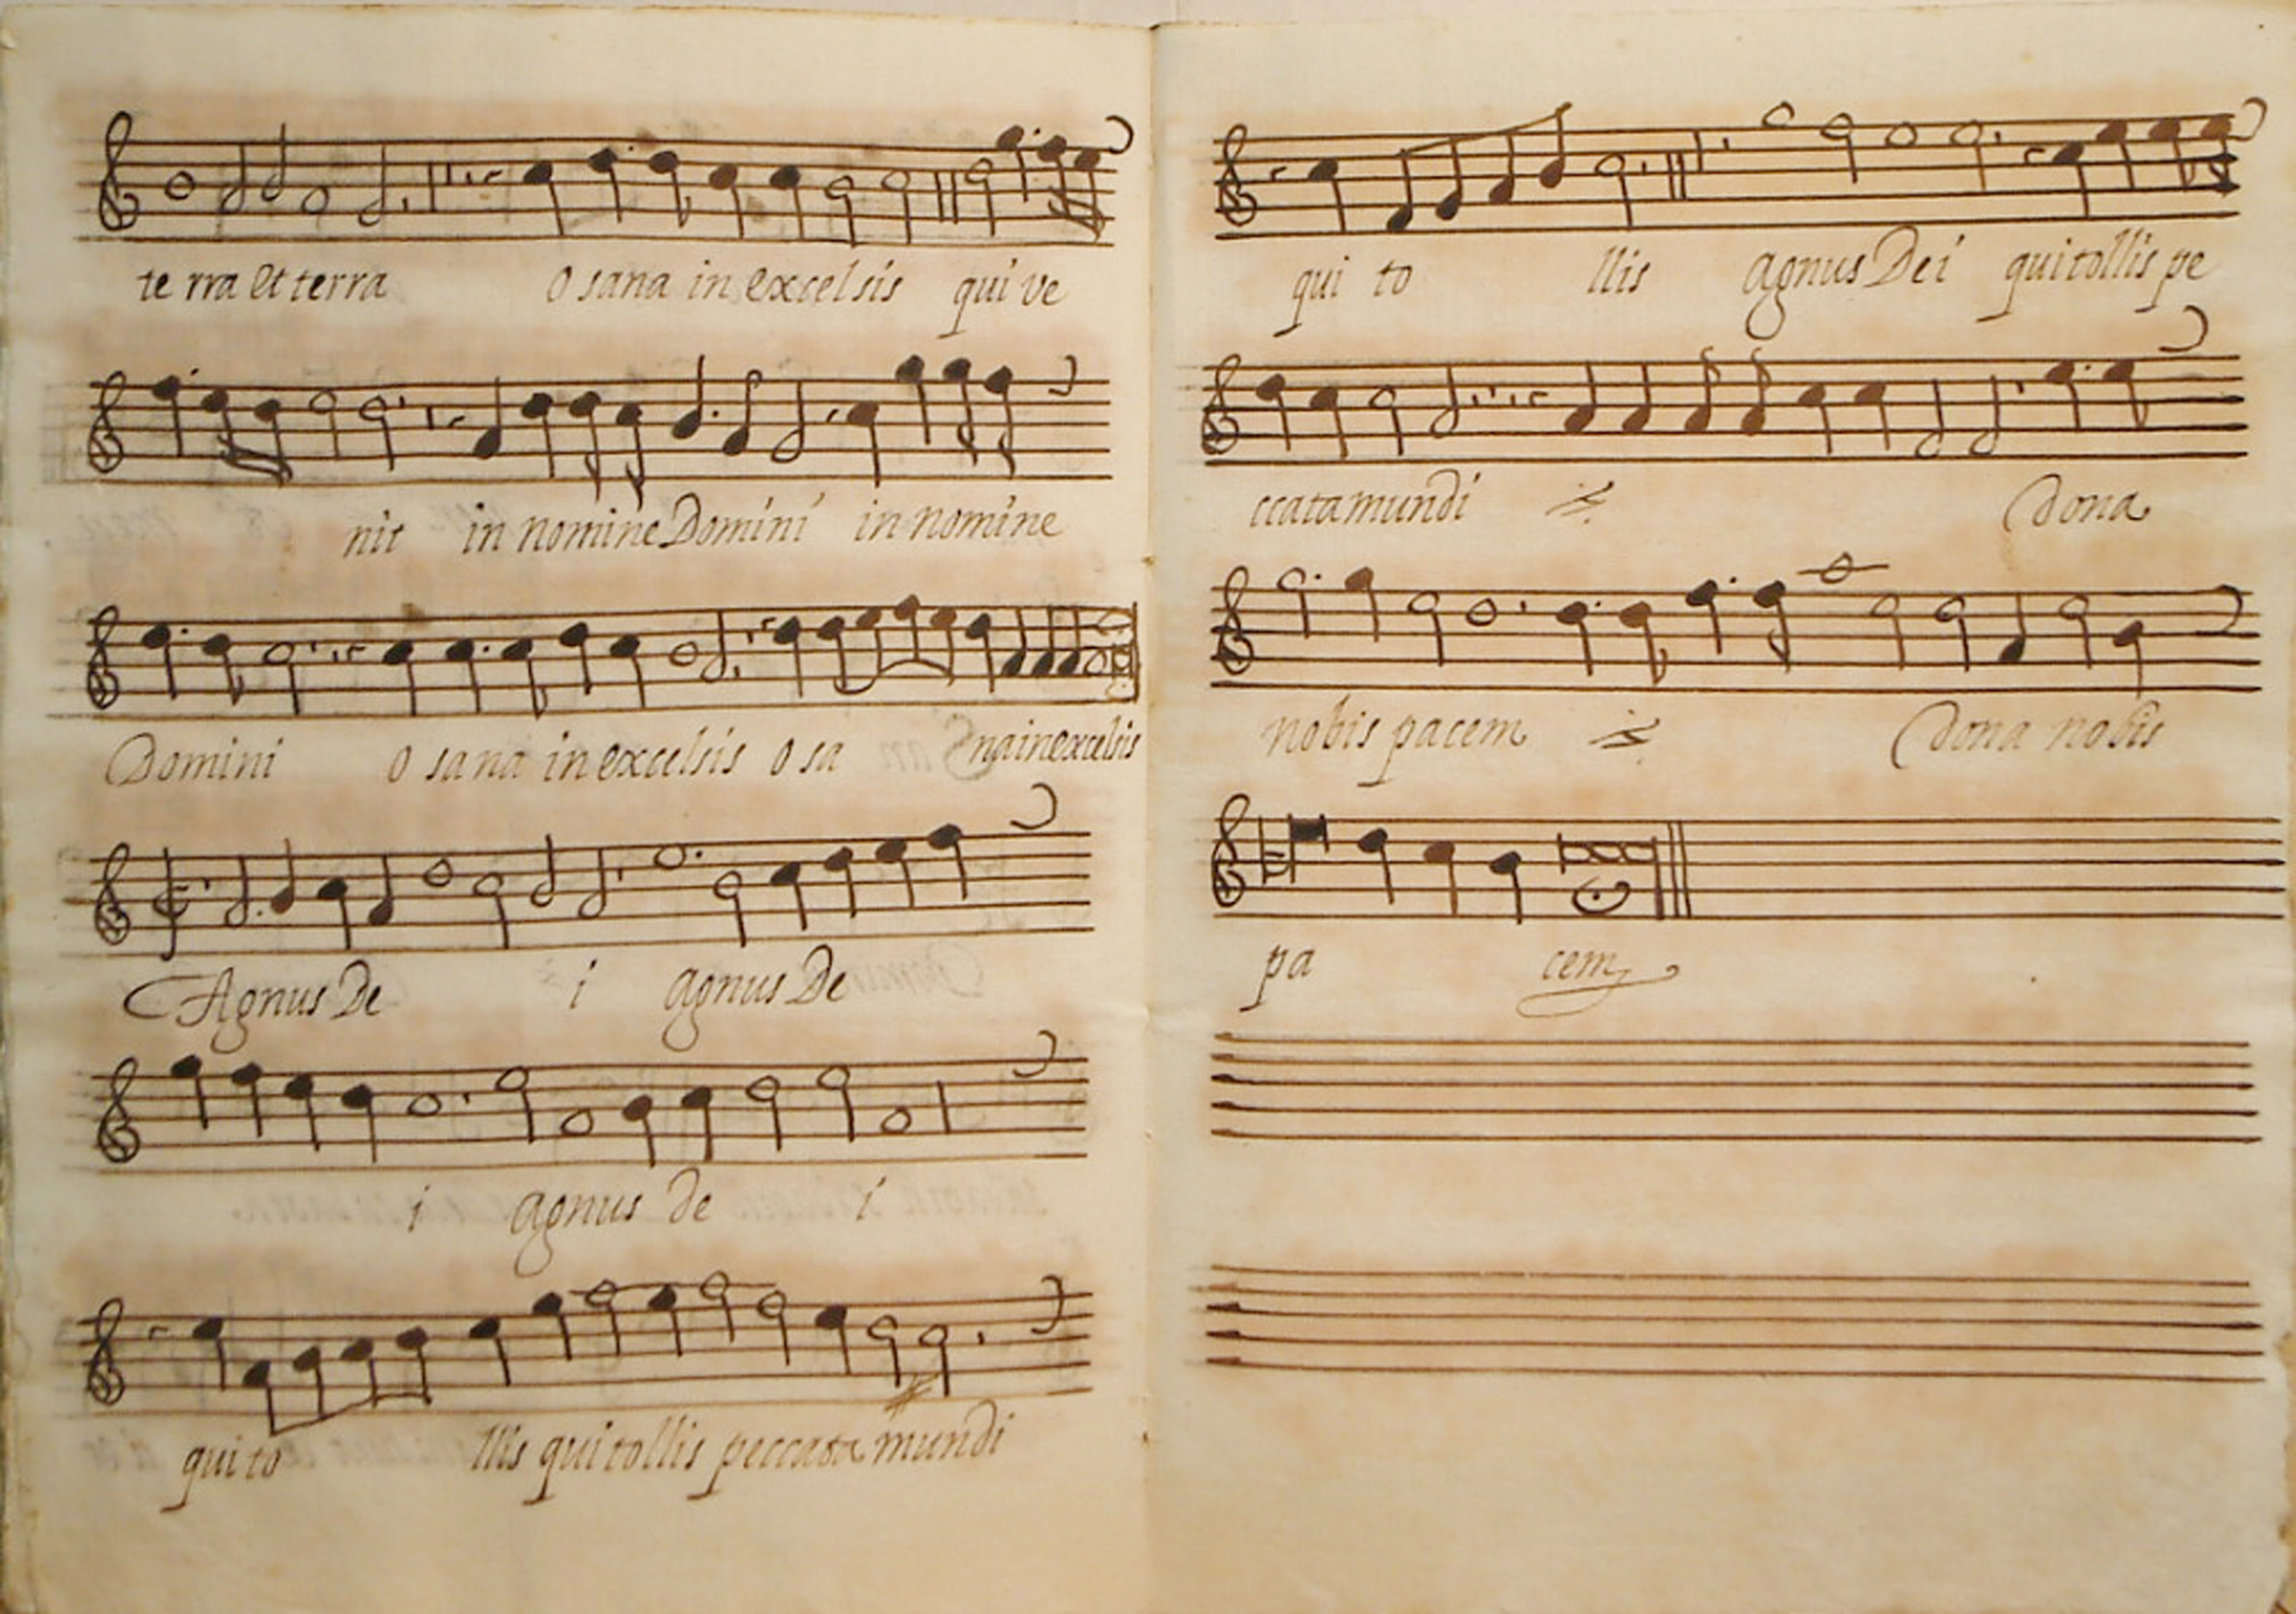 te rra et terra O sana in excelsis qui ve
nit in nomine Domini in nomine
Domini O sana in excelsis O sa na in excelsis
Agnus De i agnus De
i agnus de i
qui to llis qui tollis peccata mundi
qui to llis agnus Dei qui tollis pe
ccata mundi Dona
nobis pacem Dona nobis
pa cem